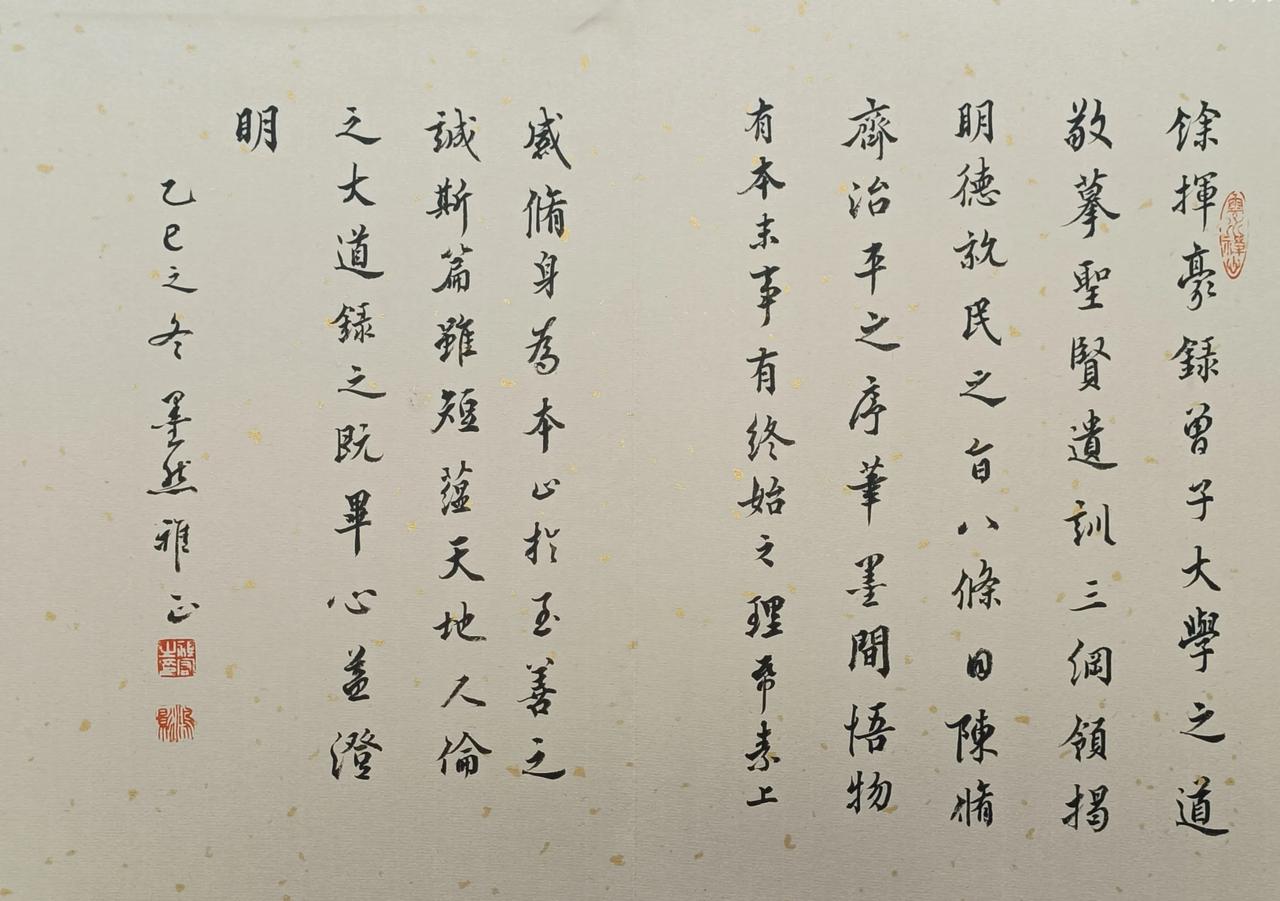 馀揮豪錄曾子大學之道
敬摹聖賢遺訓三綱領揭
明德就民之旨八條目陳脩
齊治平之序筆墨間悟物
有本末事有終始之理帋素上
感脩身為本止於至善之
誠斯篇雖短蘊天地人倫
之大道錄之既畢心益澄
明
乙巳之冬墨然雅正